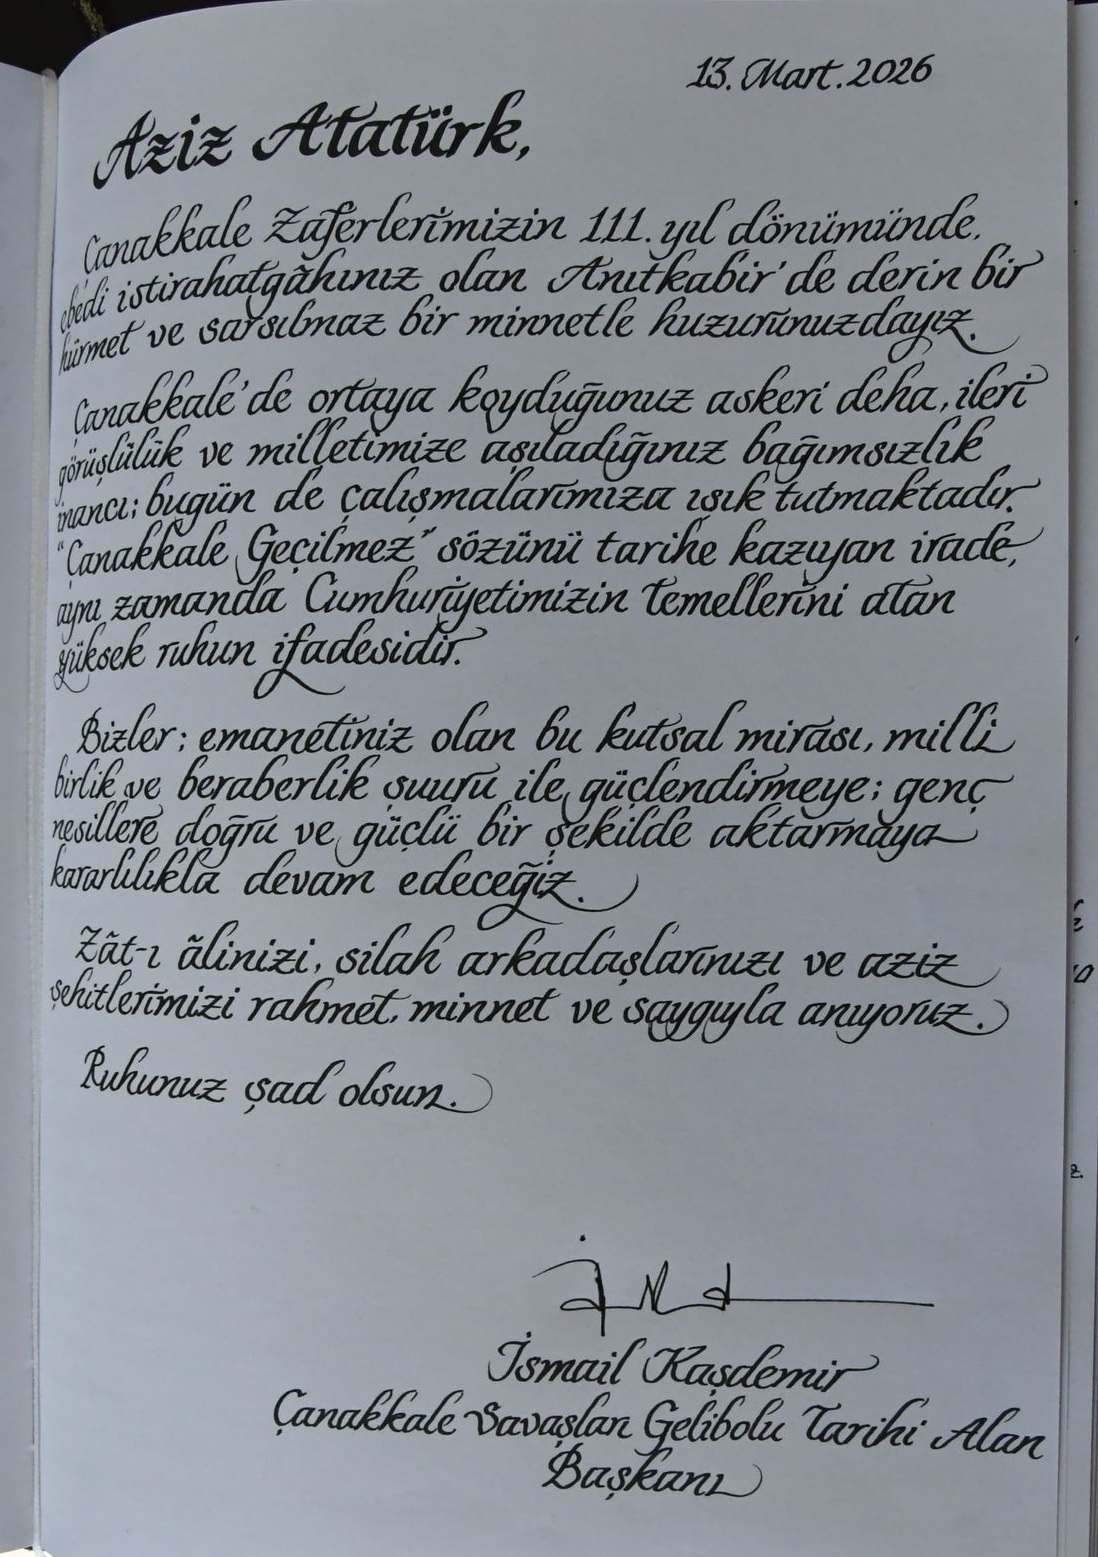 13. Mart. 2026
Aziz Atatürk,
Çanakkale Zaferlerimizin 111. yıl dönümünde,
ebedi istirahatgâhınız olan Anıtkabir'de derin bir
hürmet ve sarsılmaz bir minnetle huzurunuzdayız.
Çanakkale'de ortaya koyduğunuz askeri deha, ileri
görüşlülük ve milletimize aşıladığınız bağımsızlık
inancı; bugün de çalışmalarımıza ışık tutmaktadır.
"Çanakkale Geçilmez" sözünü tarihe kazıyan irade,
aynı zamanda Cumhuriyetimizin temellerini atan
yüksek ruhun ifadesidir.
Bizler; emanetiniz olan bu kutsal mirası, milli
birlik ve beraberlik şuuru ile güçlendirmeye; genç
nesillere doğru ve güçlü bir şekilde aktarmaya
kararlılıkla devam edeceğiz.
Zât-ı âlinizi, silah arkadaşlarınızı ve aziz
şehitlerimizi rahmet, minnet ve saygıyla anıyoruz.
Ruhunuz şad olsun.
İsmail Kaşdemir
Çanakkale Savaşları Gelibolu Tarihi Alan
Başkanı